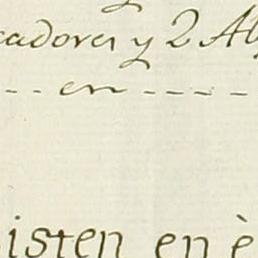 cadores y 2 Al
-- en ----
isten en è